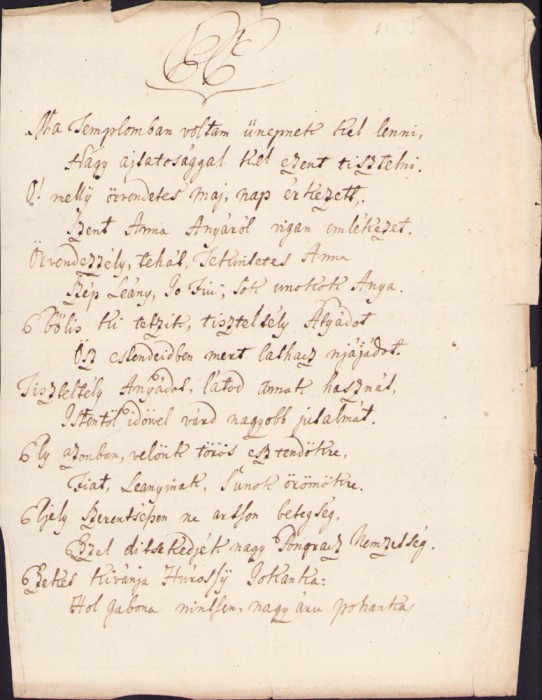 Ma Templomban voltam ünepnek kel lenni,
Nagy ajtatosággal kel ezent tisztelni.
O! melly örvendetes maj, nap érkezett,
Szent Anna Anyáról vigan emlékezet.
Örvendezzély, tehát, Tekintetes Anna
Szép Leány, Jo Fiu, sok unokok Anya.
E bölis ki tetzik, tiszteltsély Atyádot
Ösz estendeidben mert lathacz njájádot.
Tiszteltély Anyádot, látod annak hasznát,
Istentöl idövel várd nagyobb jutalmát.
Ely azonban, velönk törös esztendökre,
Fiat, Leanyinak, Sunok örömökre.
Eljely Szerentsésen ne artson betegség,
Ezzel ditsekedjék nagy Pongracz Nemzetség.
Ezekes kivánja Hurossÿ Jokanka:
Hol gabona nintsen, nagy áru pohanka